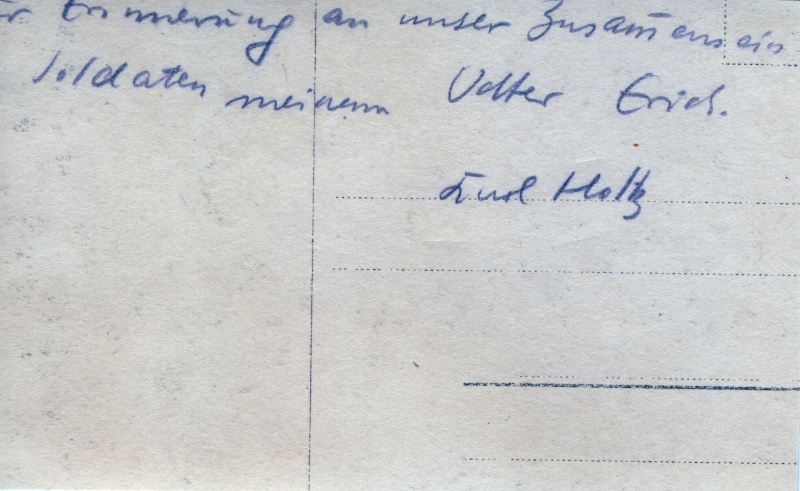 Erinnerung an unser Zusam̄ensein
Soldaten meinem Vetter Erich.
Holtz